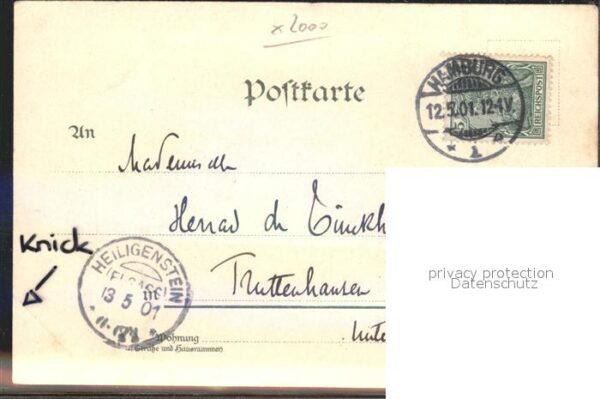 x2000
Postkarte
HAMBURG
12.5.01.12-1V.
* 1 p
REICHSPOST
An
Mademoiselle
Herrad de
privacy protection
Datenschutz
Knick
HEILIGENSTEIN
(ELSASS)
13 5 01
in
Truttenhausen
Wohnung
(Straße und Hausnummer)